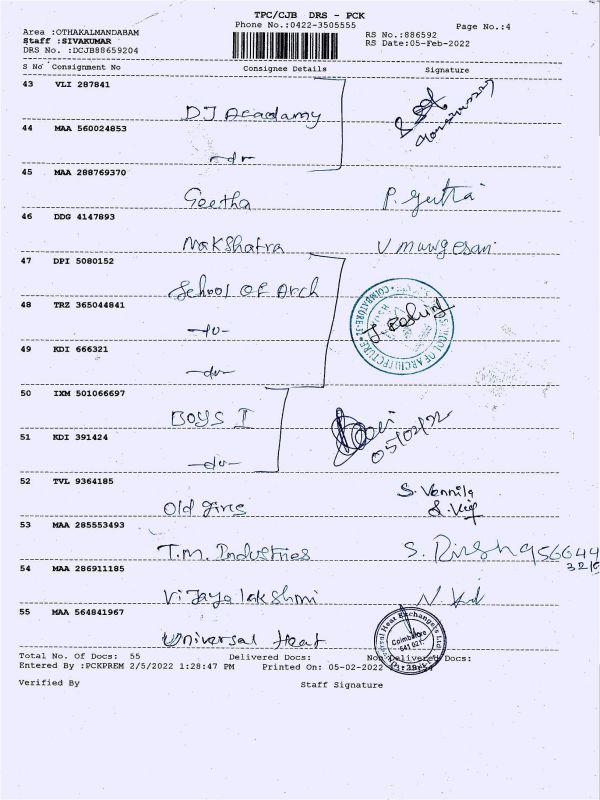 TPC/CJB DRS - PCK
Phone No.:0422-3505555
Page No.:4
Area :OTHAKALMANDABAM
Staff :SIVAKUMAR
DRS No. :DCJB88659204
RS No.:886592
RS Date:05-Feb-2022
S No Consignment No Consignee Details Signature
43 VLI 287841
DJ Acadamy
44 MAA 560024853
-do-
45 MAA 288769370
Geetha P. Geetha
46 DDG 4147893
Nakshatra V murugesan
47 DPI 5080152
School of Arch
48 TRZ 365044841
-do-
SCHOOL OF ARCHITECTURE COIMBATORE-32
49 KDI 666321
-do-
50 IXM 501066697
Boys I
05/02/22
51 KDI 391424
-do-
52 TVL 9364185
Old Girls S. Vennila
53 MAA 285553493
T.M. Industries S.
54 MAA 286911185
Vijayalakshmi
55 MAA 564841967
Universal Heat
Universal Heat Exchangers Ltd
Coimbatore
641 021.
Total No. Of Docs: 55 Delivered Docs: Non-Delivered Docs:
Entered By :PCKPREM 2/5/2022 1:28:47 PM Printed On: 05-02-2022
Verified By Staff Signature